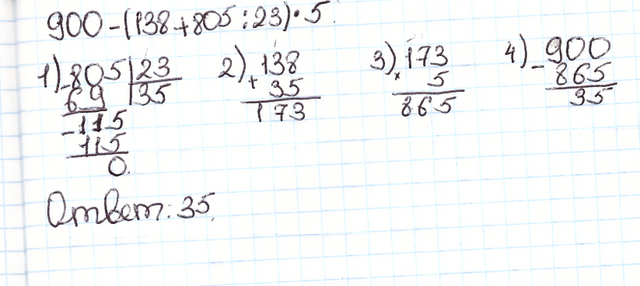 900-(138+805:23)·5
1) 805 | 23 2) 138 3) 173 4) 900
- 69 35 + 35 × 5 - 865
-115 173 865 35
115
0.
Ответ: 35.